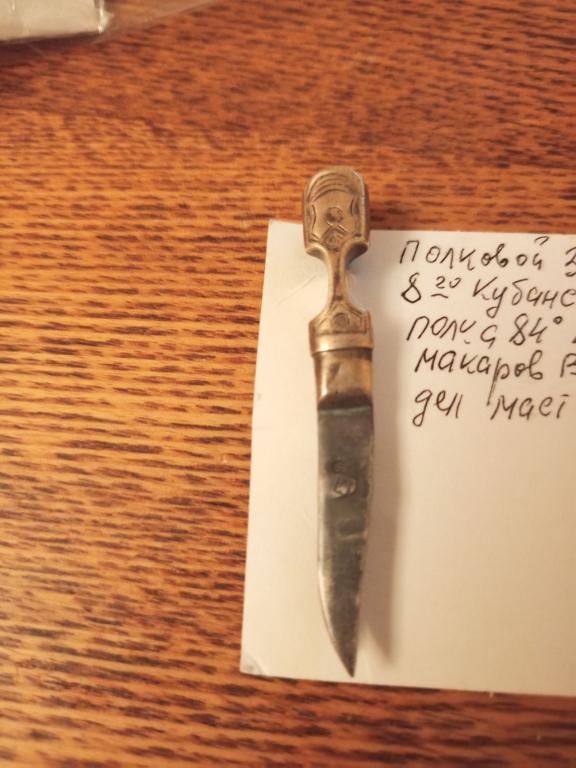 полковой
8го Кубанс
полк 84°
макаров В
дел маст